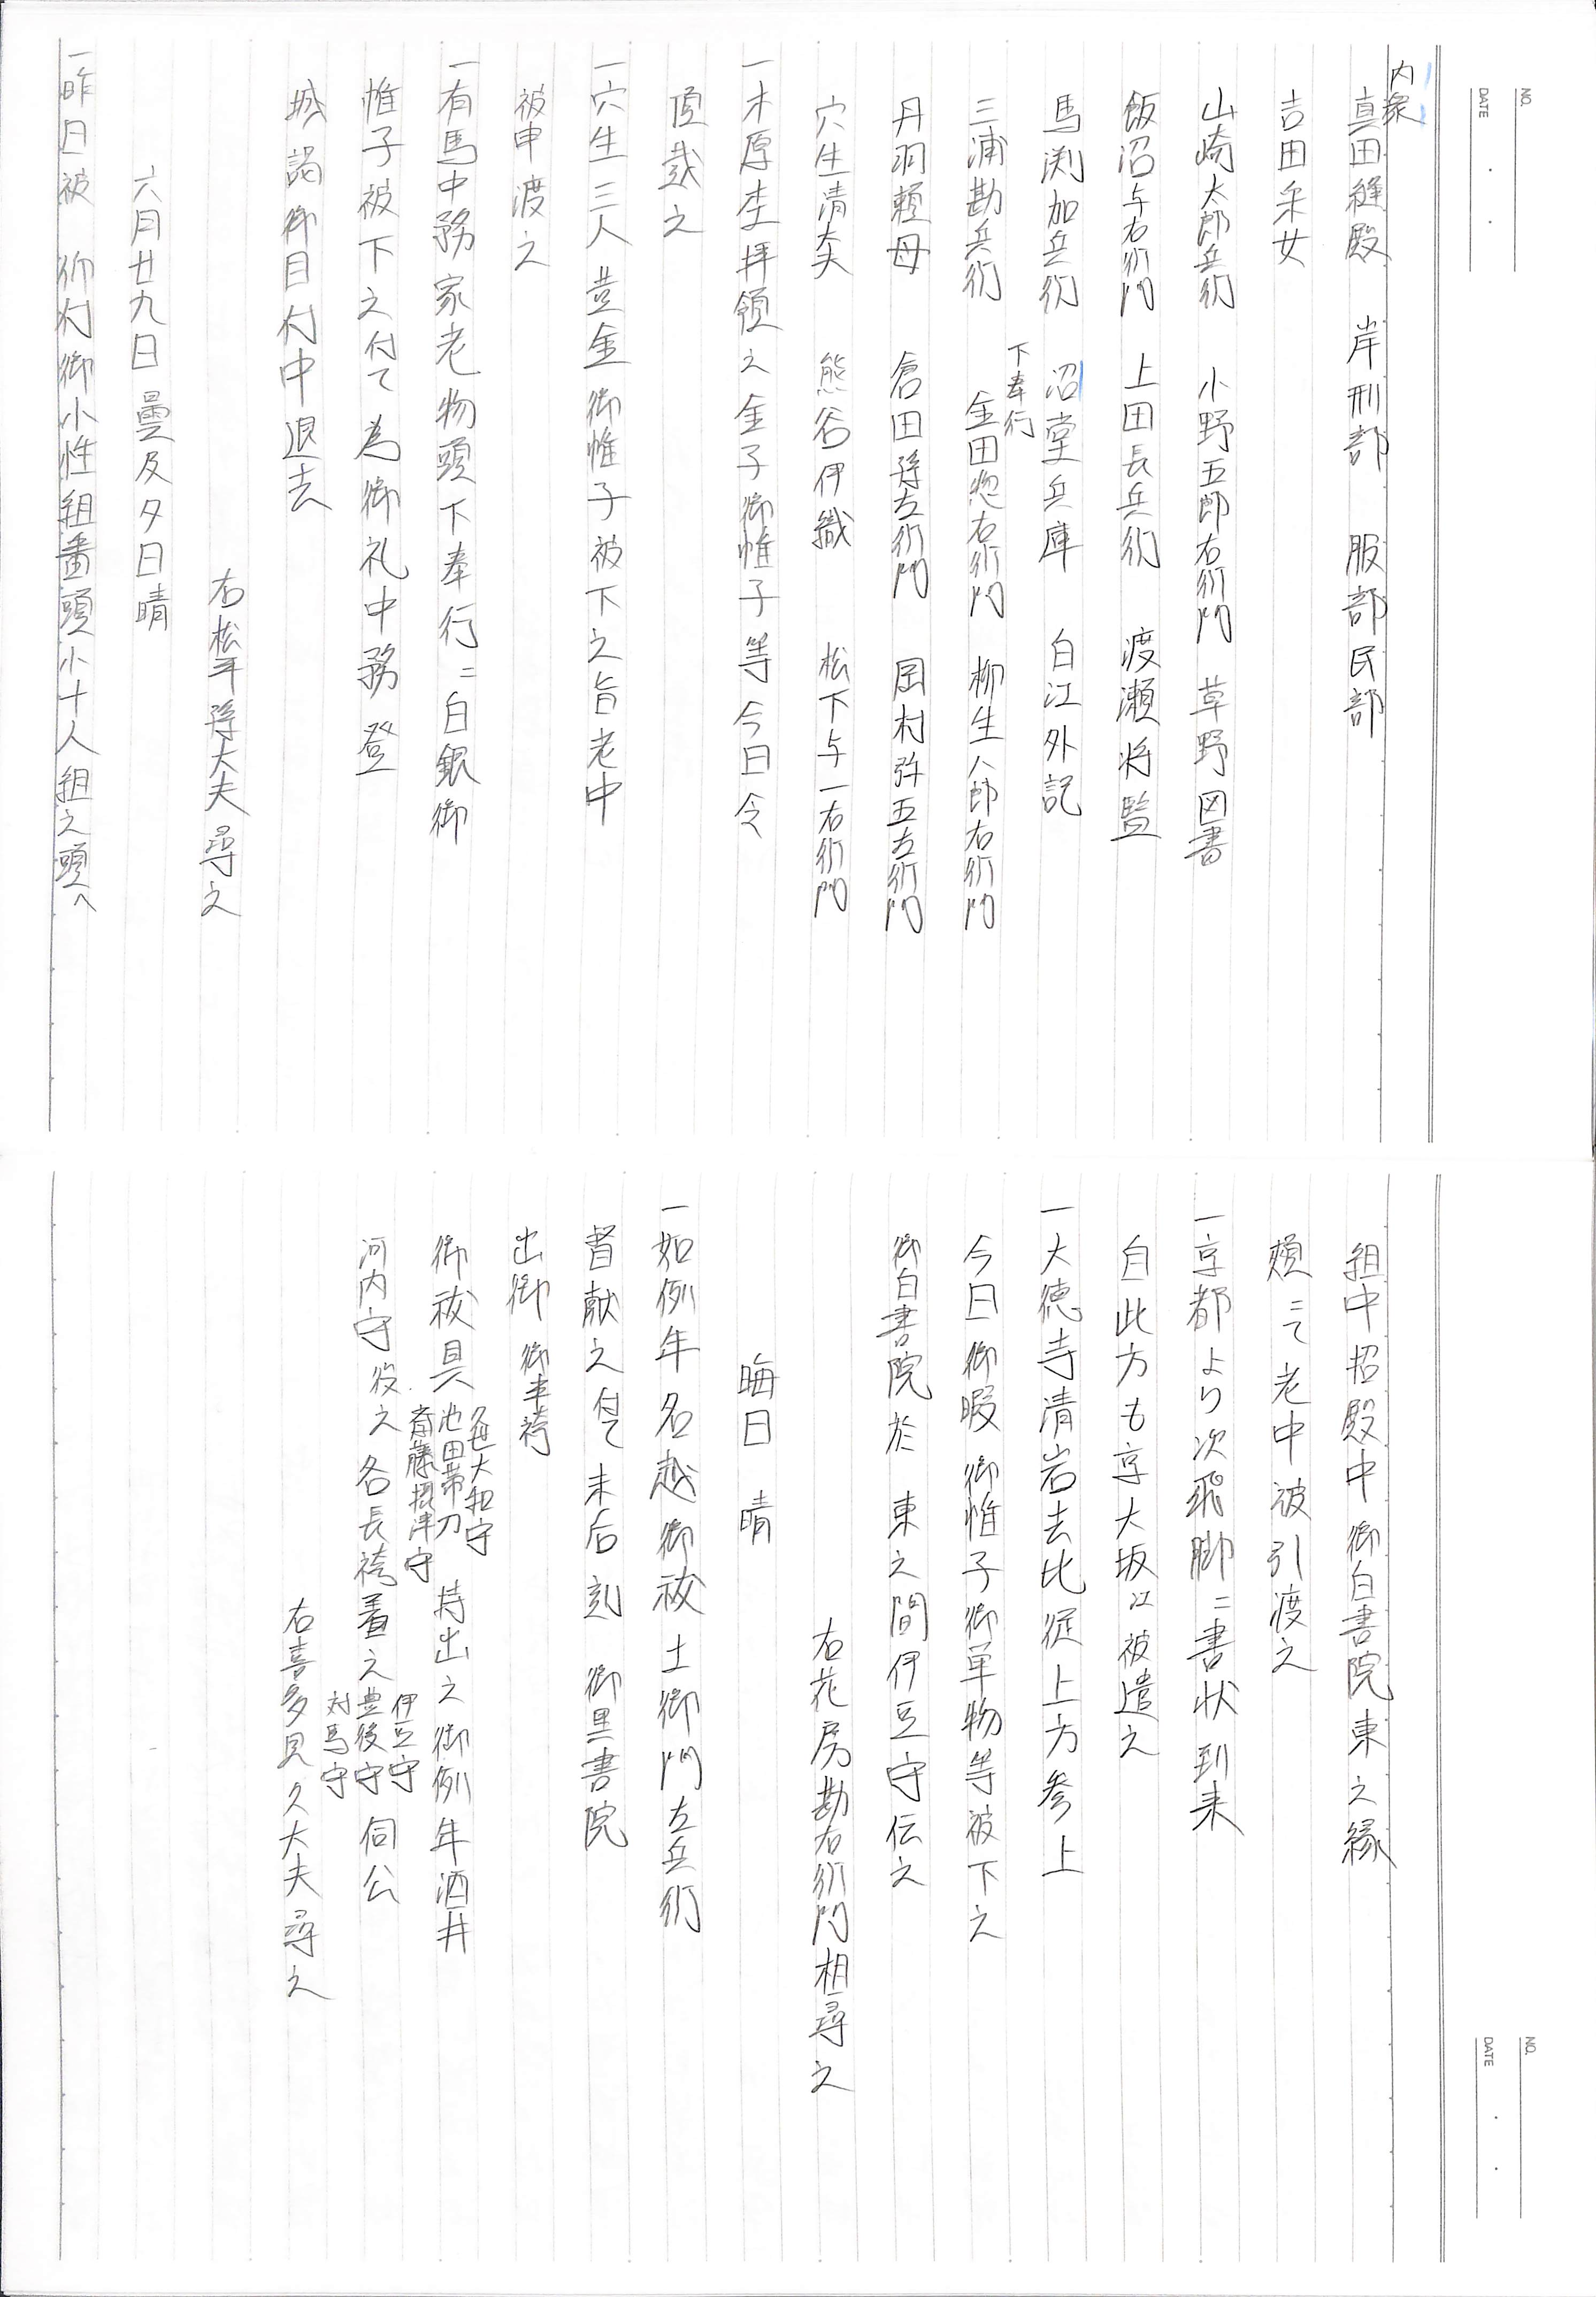 NO.
DATE
内衆
真田縫殿 岸刑部 服部民部
吉田采女
山崎太郎兵衛 小野五郎右衛門 草野図書
飯沼与右衛門 上田長兵衛 渡瀬将監
馬渕加兵衛 沼堂兵庫 白江外記
下奉行
三浦勘兵衛 金田惣右衛門 柳生八郎右衛門
丹羽頼母 倉田孫左衛門 岡村弥五左衛門
穴生清太夫 熊谷伊織 松下与一右衛門
一木原杢拝領之金子御帷子等今日令
頂戴之
一穴生三人並金御帷子被下之旨老中
被申渡之
一有馬中務家老物頭下奉行ニ白銀御
帷子被下之付て為御礼中務登
城謁御目付中退去
右松平孫大夫尋之
六月廿九日曇及夕日晴
一昨日被 仰付御小性組番頭小十人組之頭へ
NO.
DATE
組中招殿中御白書院東之縁
頬ニて老中被引渡之
一京都より次飛脚ニ書状到来
自此方も京大坂江被遣之
一大徳寺清岩去比従上方参上
今日御暇御帷子御単物等被下之
御白書院於 東之間伊豆守伝之
右花房勘右衛門相尋之
晦日 晴
一如例年名越御祓土御門左兵衛
督献之付て未后刻 御黒書院
出御 御半袴
久世大和守
御祓具池田帯刀 持出之御例年酒井
斎藤摂津守
河内守役之各長袴着之豊後守伺公
伊豆守
対馬守
右喜多見久大夫尋之